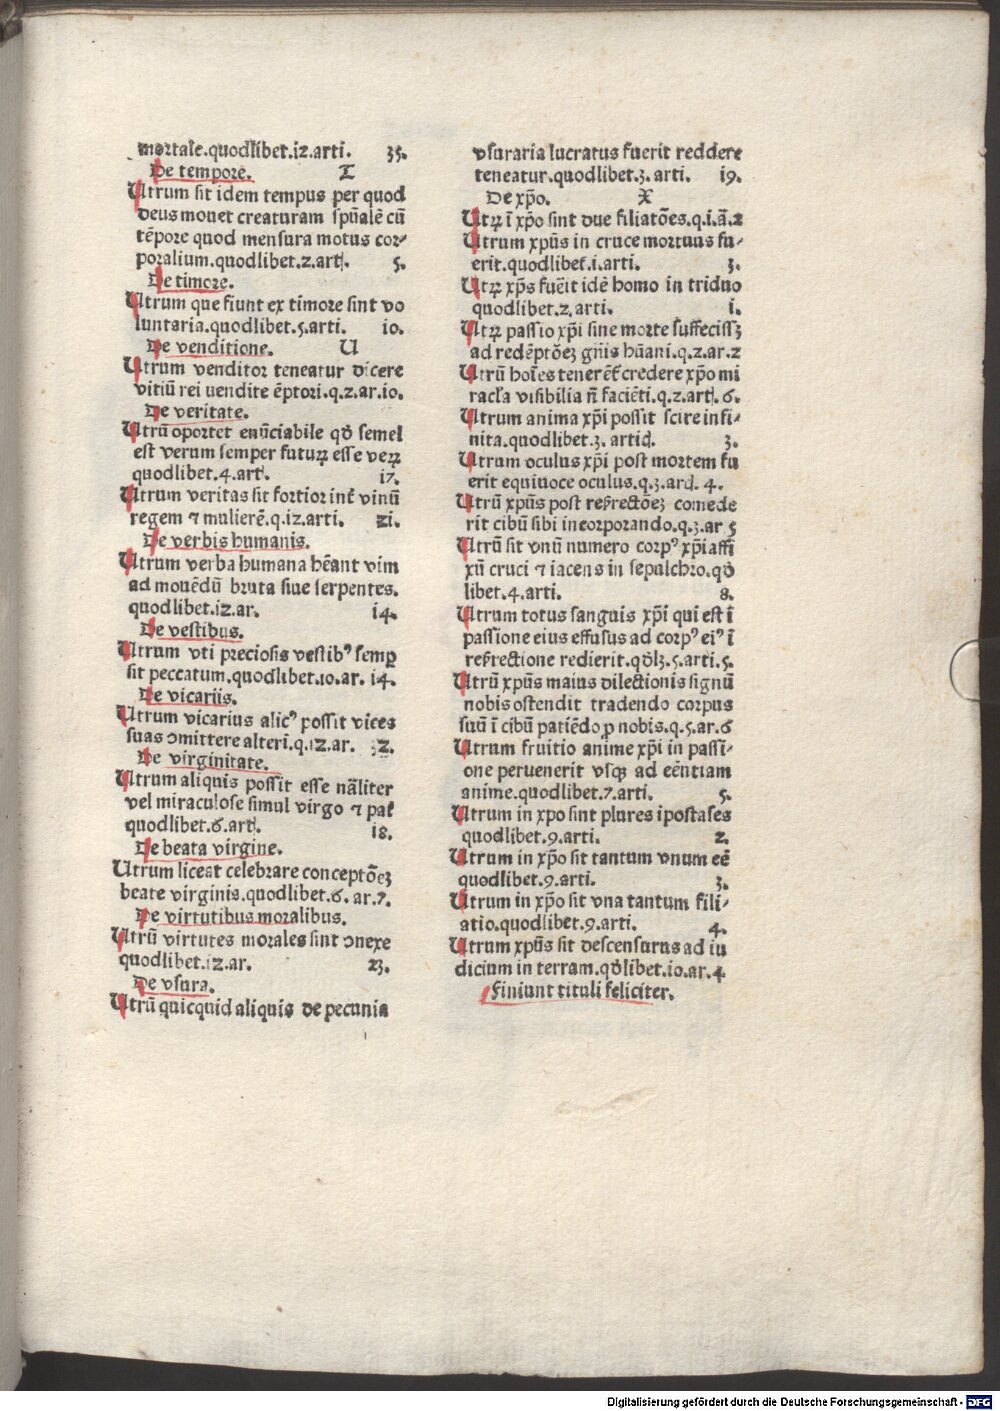 mortale.quodlibet.12.arti. 35.
De tempore. T
Utrum sit idem tempus per quod
deus mouet creaturam spūalē cū
tēpore quod mensura motus cor⸗
poralium.quodlibet.2.arti. 5.
De timore.
Utrum que fiunt ex timore sint vo
luntaria.quodlibet.5.arti. 10.
De venditione. U
Utrum venditor teneatur dicere
vitiū rei uendite ēptori.q.2.ar.10.
De veritate.
Utrū oportet enūciabile qđ semel
est verum semper futuꝝ esse veꝝ
quodlibet.4.arti. 17.
Utrum veritas sit fortior int̄ vinū
regem ⁊ mulierē.q.12.arti. 21.
De verbis humanis.
Utrum verba humana hēant vim
ad mouēdū bruta siue serpentes.
quodlibet.12.ar. 14.
De vestibus.
Utrum vti preciosis vestibꝰ semꝑ
sit peccatum.quodlibet.10.ar. 14.
De vicariis.
Utrum vicarius alicꝰ possit vices
suas ɔmittere alteri.q.12.ar. 32.
De virginitate.
Utrum aliquis possit esse nāliter
vel miraculose simul virgo ⁊ pat̄
quodlibet.6.arti. 18.
De beata virgine.
Utrum liceat celebrare conceptōeꝫ
beate virginis.quodlibet.6. ar.7.
De virtutibus moralibus.
Utrū virtutes morales sint ɔnexe
quodlibet.12.ar. 23.
De vsura.
Utrū quicquid aliquis de pecunia
vsuraria lucratus fuerit reddere
teneatur.quodlibet.3. arti. 19.
De xp̄o. X
Utꝝ ī xp̄o sint due filiatōes.q.1.ā.2
Utrum xp̄us in cruce mortuus fu⸗
erit.quodlibet.1.arti. 3.
Utꝝ xp̄s fuēit idē homo in triduo
quodlibet.2.arti. 1.
Utꝝ passio xp̄i sine morte suffecissꝫ
ad redēptōeꝫ gn̄is hūani.q.2.ar.2
Utrū hoīes tenerēt̄ credere xp̄o mi
racl̄a visibilia n̄ faciēti.q.2.arti. 6.
Utrum anima xp̄i possit scire infi⸗
nita.quodlibet.3. artic. 3.
Utrum oculus xp̄i post mortem fu
erit equiuoce oculus.q.3.arti. 4.
Utrū xp̄us post resr̄rectōeꝫ comede
rit cibū sibi incorporando.q.3.ar 5
Utrū sit vnū numero corpꝰ xp̄iaffi
xū cruci ⁊ iacens in sepulchro.qđ
libet.4.arti. 8.
Utrum totus sanguis xp̄i qui est ī
passione eius effusus ad corpꝰ eiꝰ ī
resr̄rectione redierit.qđlꝫ.5.arti.5.
Utrū xp̄us maius dilectionis signū
nobis ostendit tradendo corpus
suū ī cibū patiēdo ꝓ nobis.q.5.ar.6
Utrum fruitio anime xp̄i in passi⸗
one peruenerit vsqꝫ ad eēntiam
anime.quodlibet.7.arti. 5.
Utrum in xpo sint plures ipostases
quodlibet.9.arti. 2.
Utrum in xp̄o sit tantum vnum eē
quodlibet.9.arti. 3.
Utrum in xp̄o sit vna tantum fili⸗
atio.quodlibet.9.arti. 4.
Utrum xp̄us sit descensurus ad iu
dicium in terram.qđlibet.10.ar.4
Finiunt tituli feliciter.
Digitalisierung gefördert durch die Deutsche Forschungsgemeinschaft - DFG